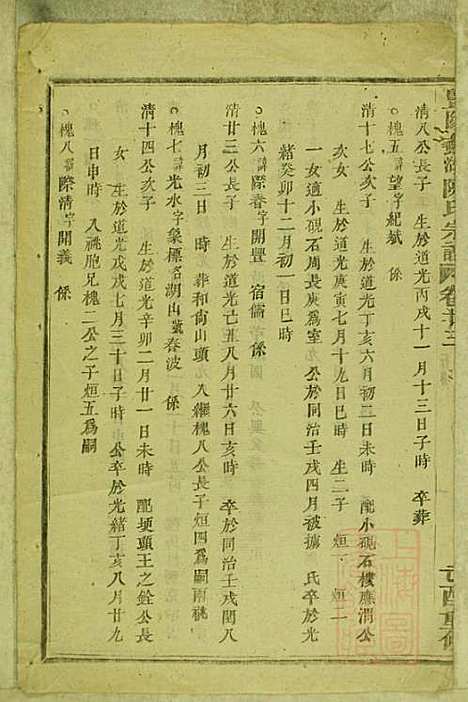 暨陽 陳氏宗譜 卷廿三
清八公長子 生於道光丙戌十一月十三日子時 卒葬
槐五諱望字紀斌 係
清十七公次子 生於道光丁亥六月初二日未時 配小硯石樓應渭公
次女 生於道光庚寅七月十九日巳時 生二子 烜一 烜二
一女適小硯石周長庚爲室 公於同治壬戌四月被擄 氏卒於光
緒癸卯十二月初一日巳時
槐六諱際春字開豐 宿儒 係
清廿三公長子 生於道光己丑八月廿六日亥時 卒於同治壬戌閏八
月初三日 時 葬和尚山頭 入繼槐八公長子烜四爲嗣兩祧
槐七諱光水字象標名湖山號春波 係
清十四公次子 生於道光辛卯二月廿一日未時 配埂頭王之銓公長
女 生於道光戊戌七月三十日子時 公卒於光緒丁亥八月廿九
日申時 入祧胞兄槐二公之子烜五爲嗣
槐八諱際清字開義 係
酉重修